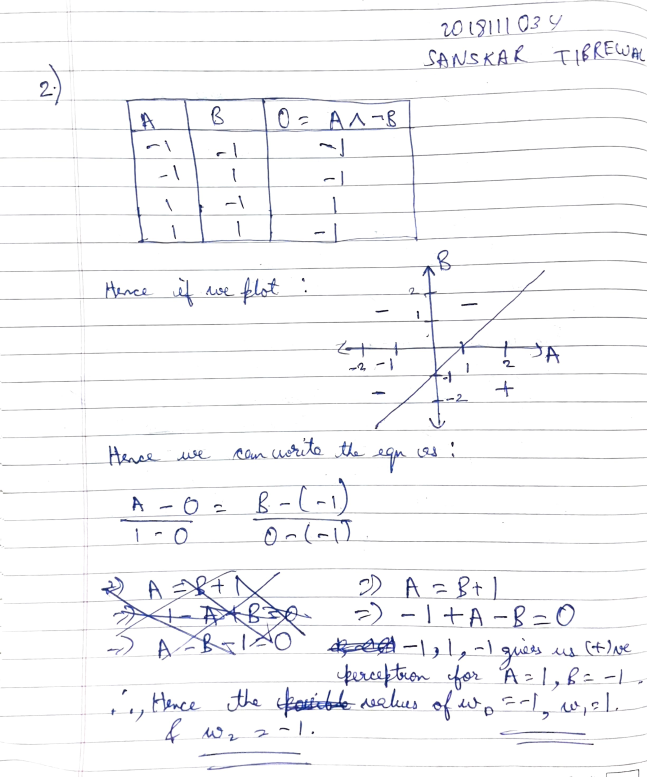 2018111034
SANSKAR TIBREWAL
2.)
A B O = A ∧ ¬B
-1 -1 -1
-1 1 -1
1 -1 1
1 1 -1
Hence if we plot :
B
2
1
- -
-2 -1 1 2 A
-1
- -2 +
Hence we can write the eqn as :
A - 0 / 1 - 0 = B - (-1) / 0 - (-1)
⇒ A = B + 1
⇒ 1 - A + B = 0
⇒ A - B - 1 = 0
⇒ A = B + 1
⇒ -1 + A - B = 0
-1, 1, -1 gives us (+)ve
perceptron for A = 1, B = -1.
∴, Hence the possible values of w0 = -1, w1 = 1.
& w2 = -1.